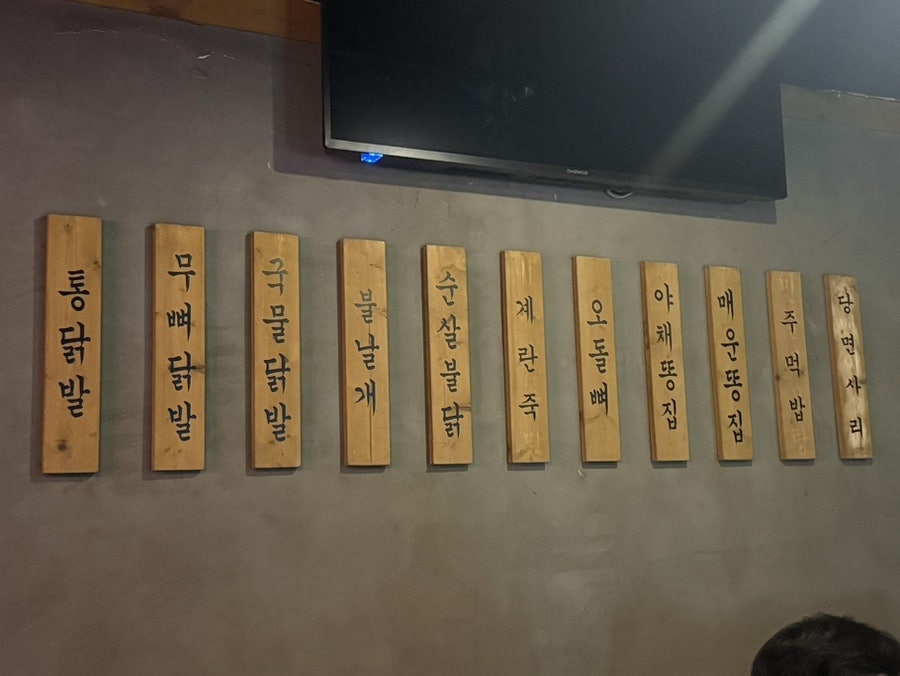 통닭발
무뼈닭발
국물닭발
불날개
순살불닭
계란죽
오돌뼈
야채똥집
매운똥집
주먹밥
당면사리